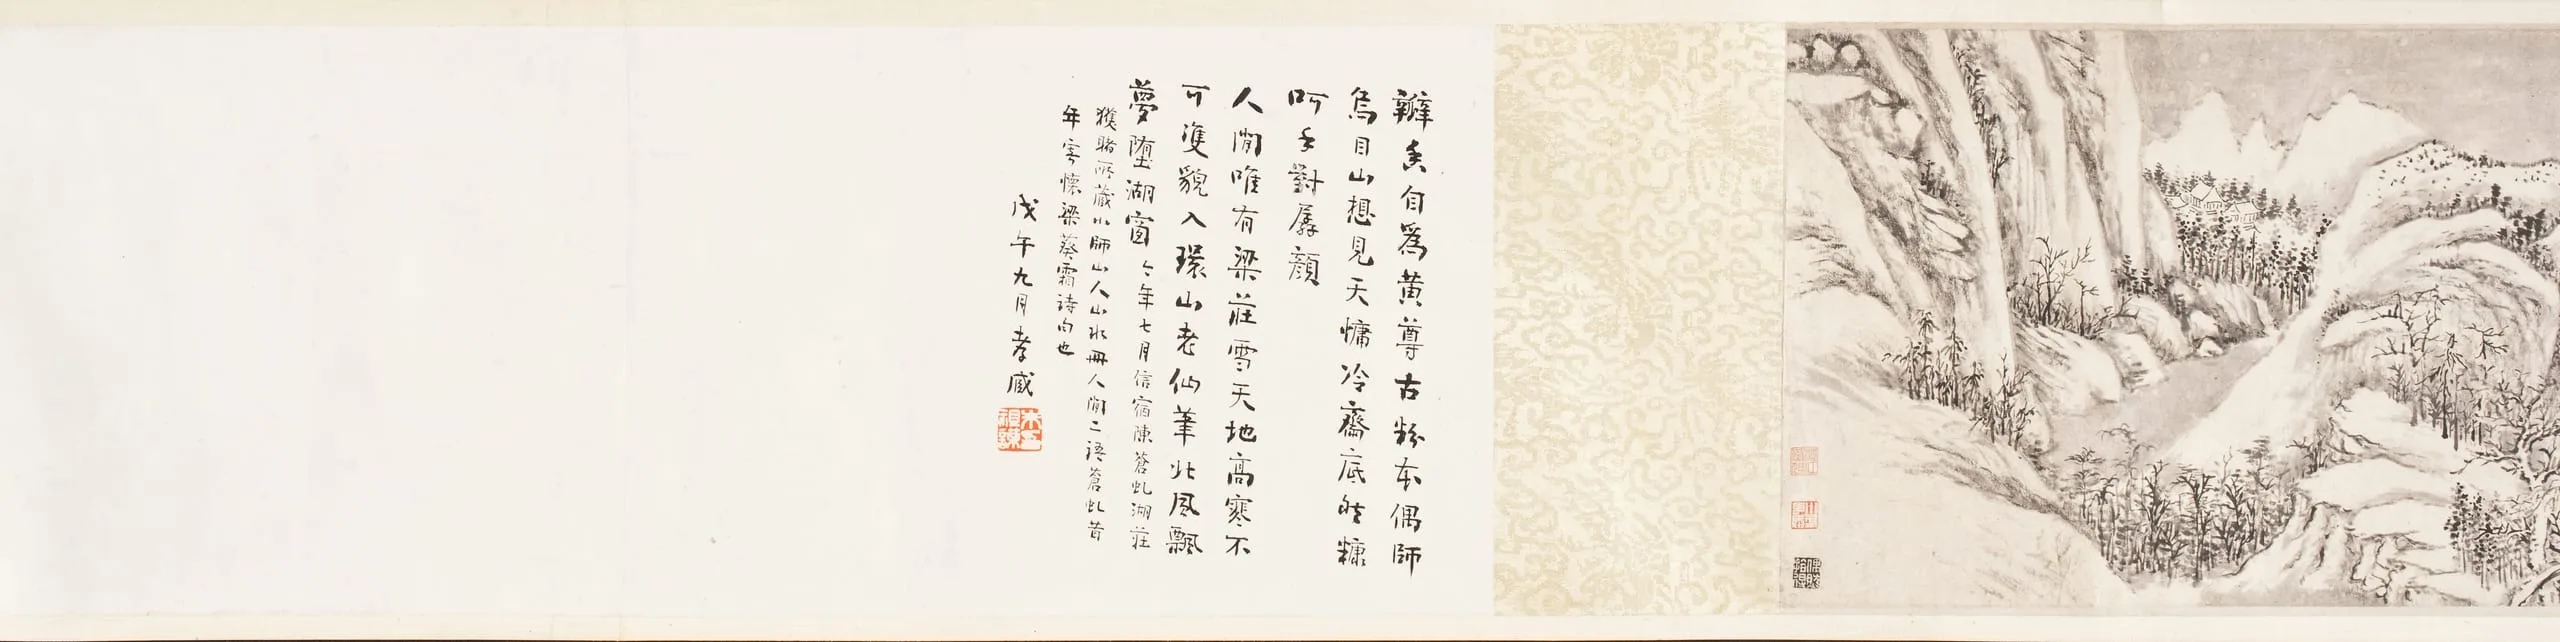 瓣香自爲黄尊古粉本偶師
烏目山想見天慵冷齋底然糠
呵手對孱顏
人間唯有梁莊雪天地高寒不
可隻貌入環山老仙筆北風飄
夢墮湖窗今年七月信宿陳蒼虬湖莊
獲睹所藏小師山人山水冊人間二語蒼虬昔
年寄懷梁葵霜詩句也
戊午九月孝臧
朱五
祖謀